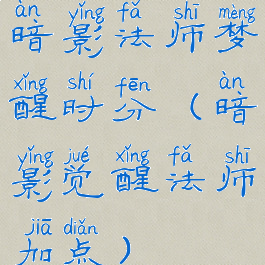 àn yǐng fǎ shī mèng
暗影法师梦
xǐng shí fēn àn
醒时分（暗
yǐng jué xǐng fǎ shī
影觉醒法师
jiā diǎn
加点）